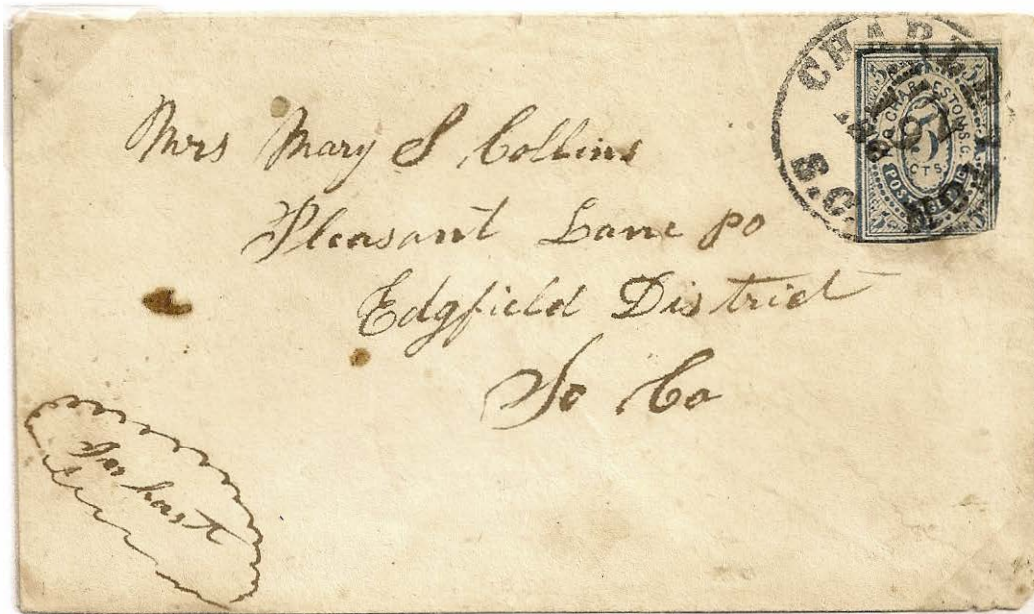 CHARLESTON
S.C.
P.O. CHARLESTON, S.C.
5 5
5
CTS.
POSTAGE
5 5
Mrs Mary S Collins
Pleasant Lane po
Edgfield District
So Ca
In hast